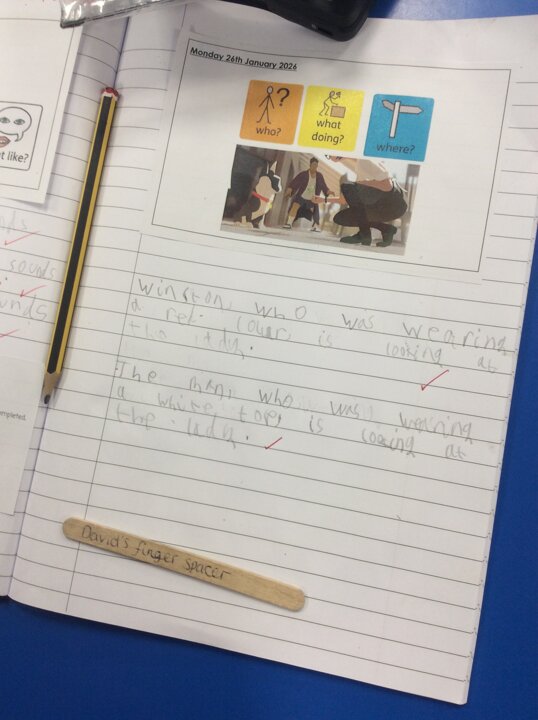 Monday 26th January 2026
who?
what
doing?
where?
t like?
sounds
unds
ompleted.
Winston, who was wearing
a red couler is looking at
the lady.
The man, who was wearing
a white top, is looking at
the lady.
David's finger spacer